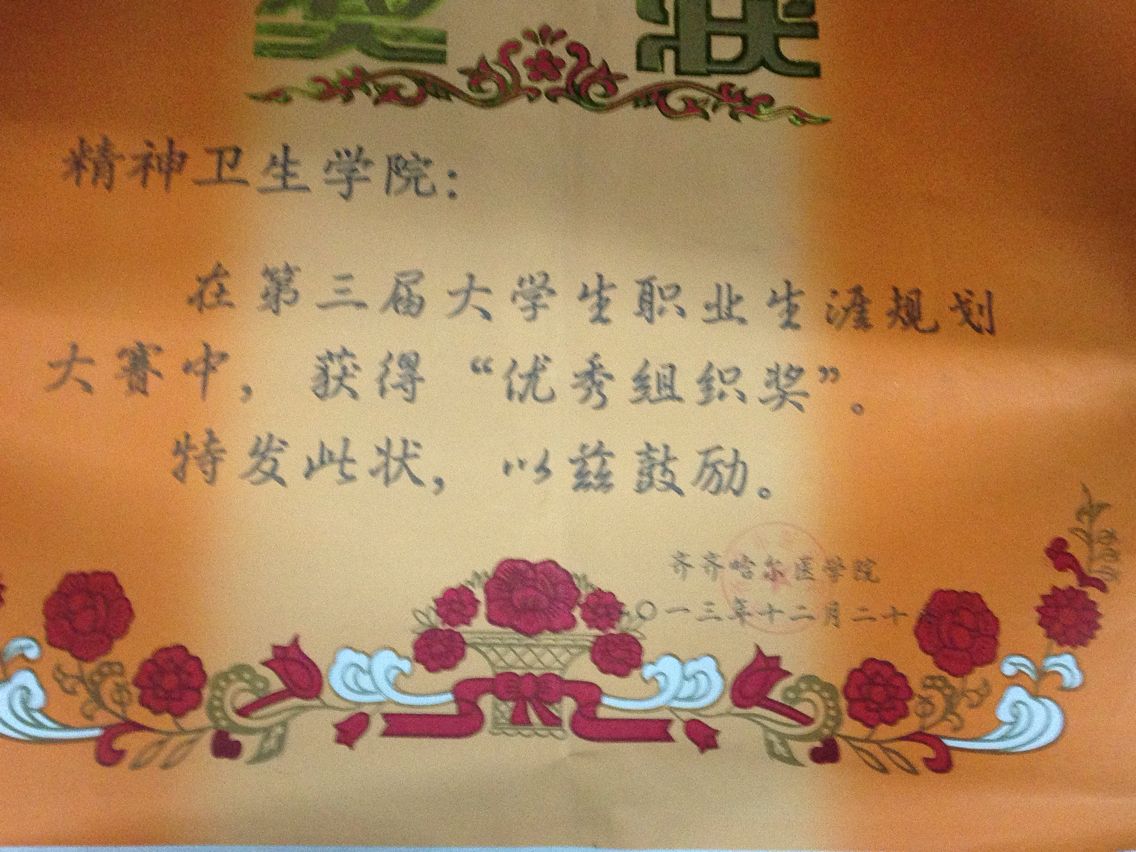 奖 状
精神卫生学院：
在第三届大学生职业生涯规划
大赛中，获得“优秀组织奖”。
特发此状，以兹鼓励。
齐齐哈尔医学院
〇一三年十二月二十